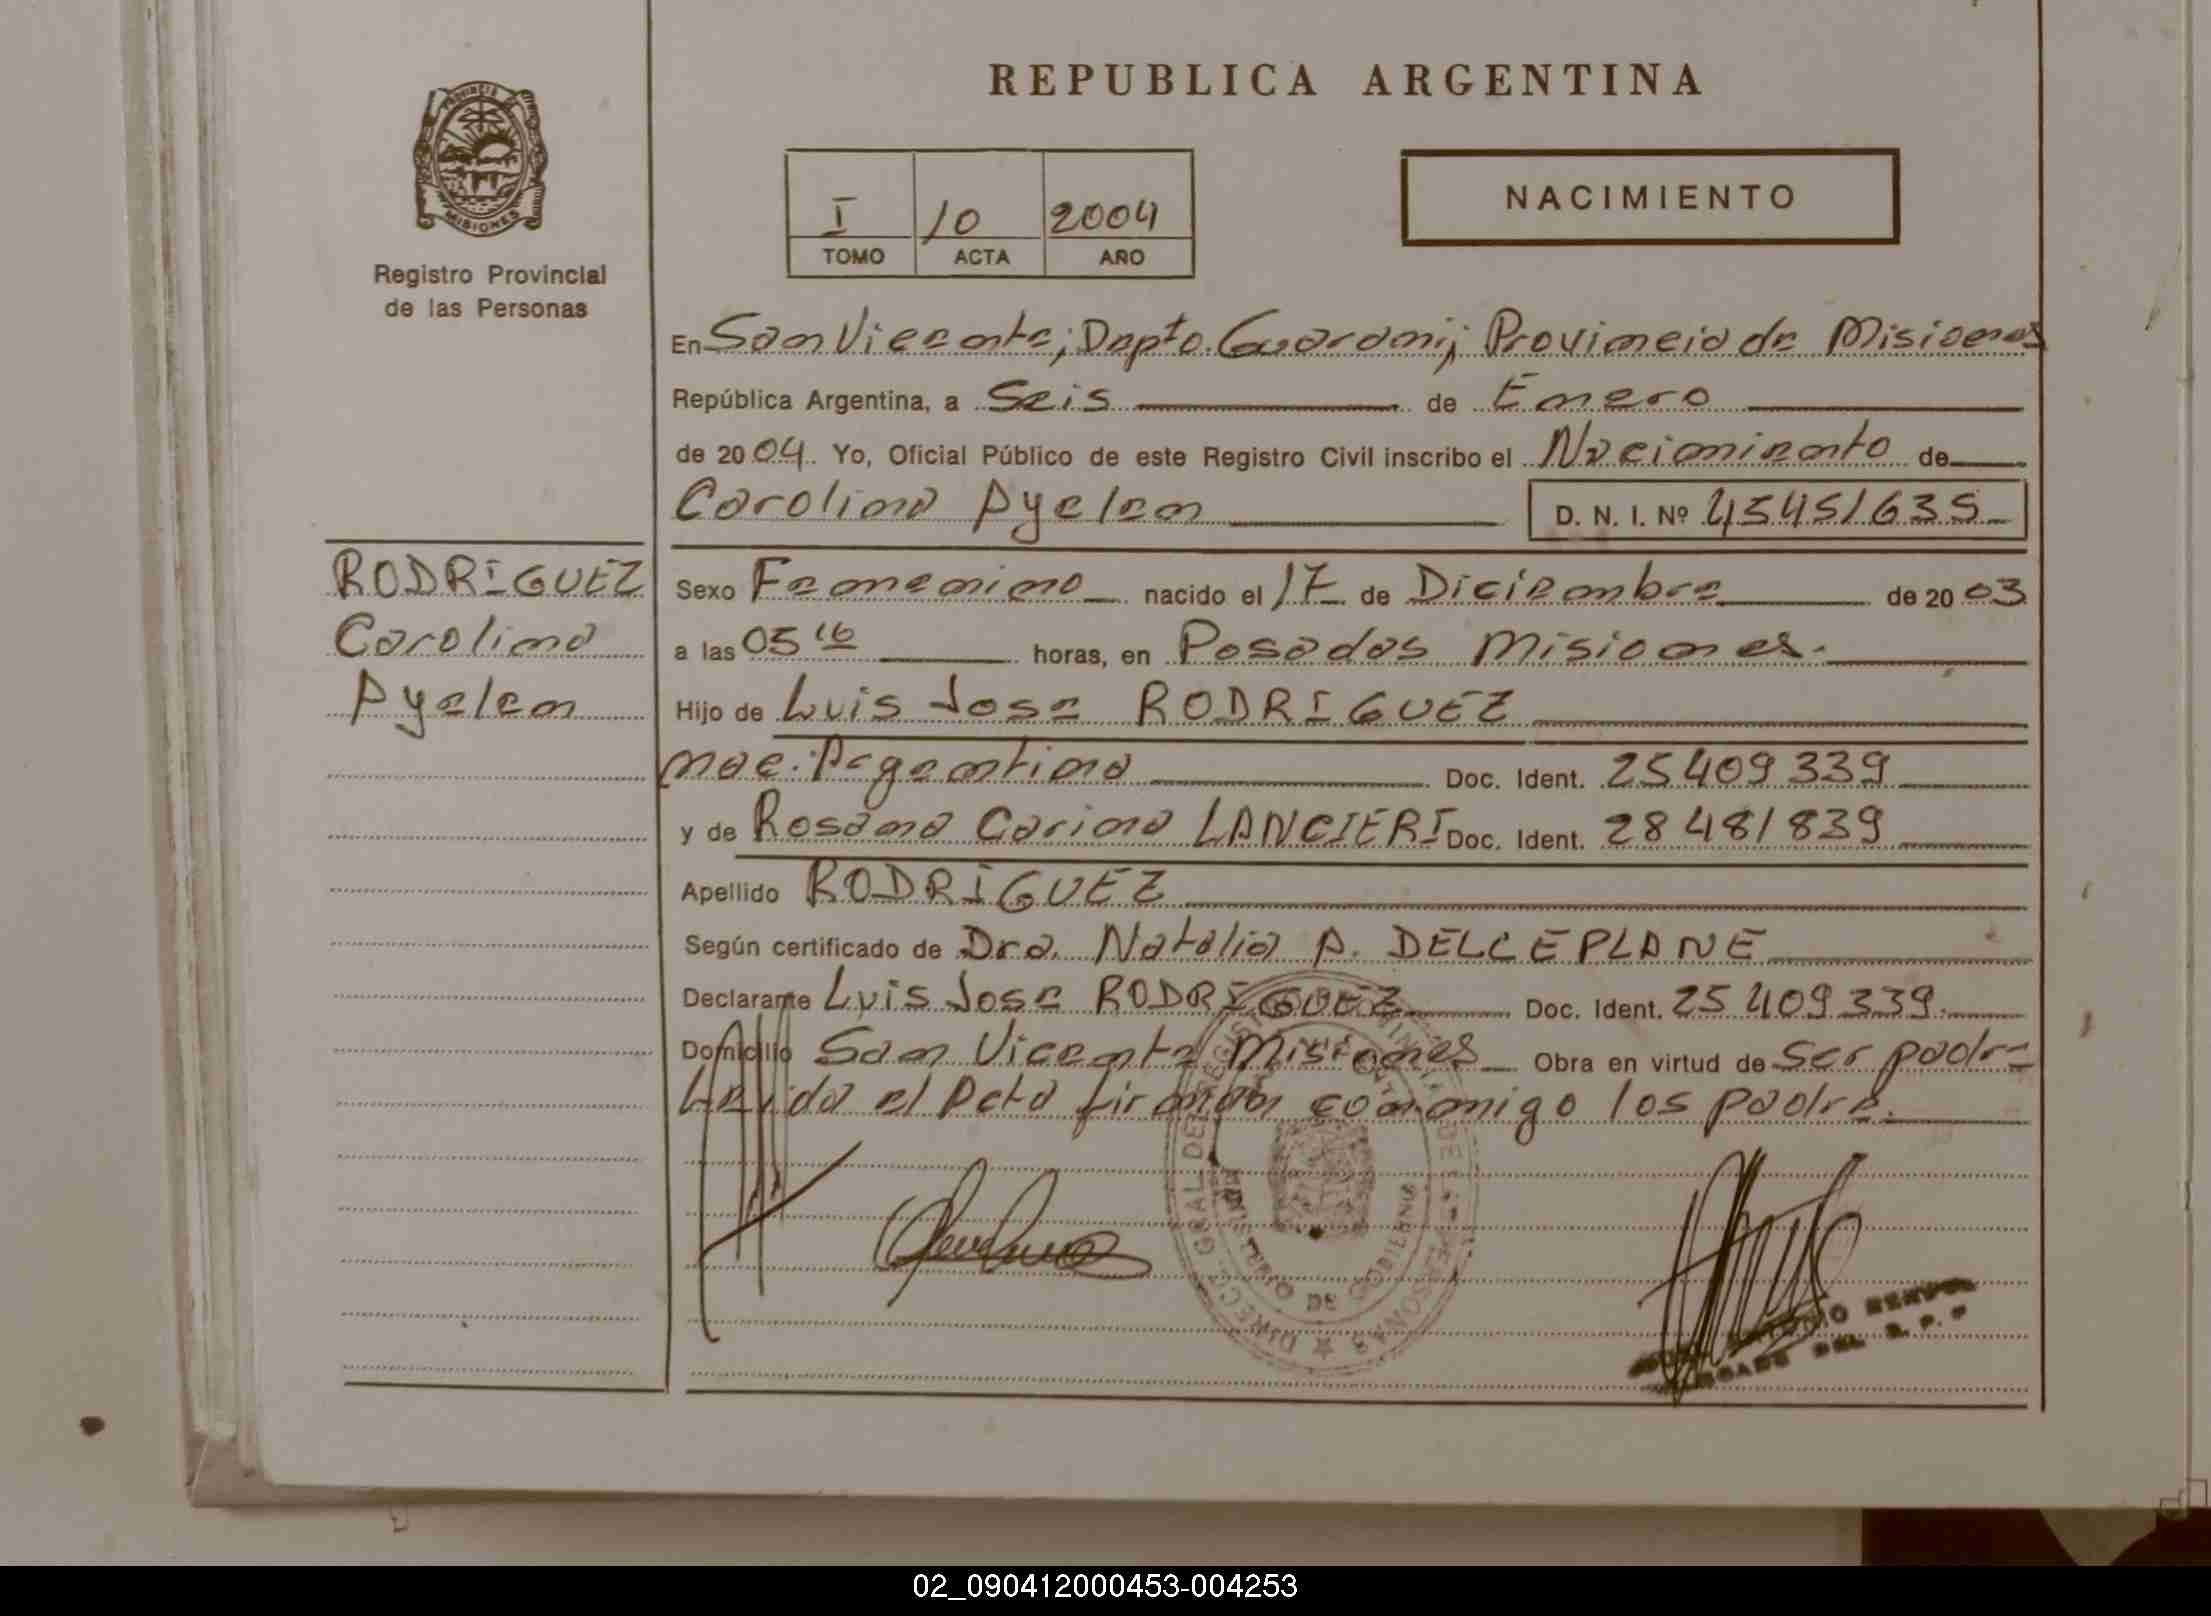 REPUBLICA ARGENTINA
PROVINCIA DE
MISIONES
Registro Provincial
de las Personas
I 10 2004
TOMO ACTA AÑO
NACIMIENTO
En San Vicente; Depto. Guarani; Provincia de Misiones
República Argentina, a Seis de Enero
de 2004. Yo, Oficial Público de este Registro Civil inscribo el Nacimiento de
Carolina Ayelen D. N. I. Nº 45451635
RODRIGUEZ
Carolina
Ayelen
Sexo Femenino nacido el 17 de Diciembre de 2003
a las 05 16 horas, en Posadas Misiones.
Hijo de Luis Jose RODRIGUEZ
nac. Argentina Doc. Ident. 25409339
y de Rosana Carina LANCIERI Doc. Ident. 28481839
Apellido RODRIGUEZ
Según certificado de Dra. Natalia A. DELCEPLANE
Declarante Luis Jose RODRIGUEZ Doc. Ident. 25409339.
Domicilio San Vicente Misiones Obra en virtud de ser padre
Leida el Acta firman conmigo los padre.
DIRECC. GRAL. DE REGISTRO PROVINCIAL DE LAS PERSONAS
MINISTERIO DE GOBIERNO
DEL R. P. P
02_090412000453-004253